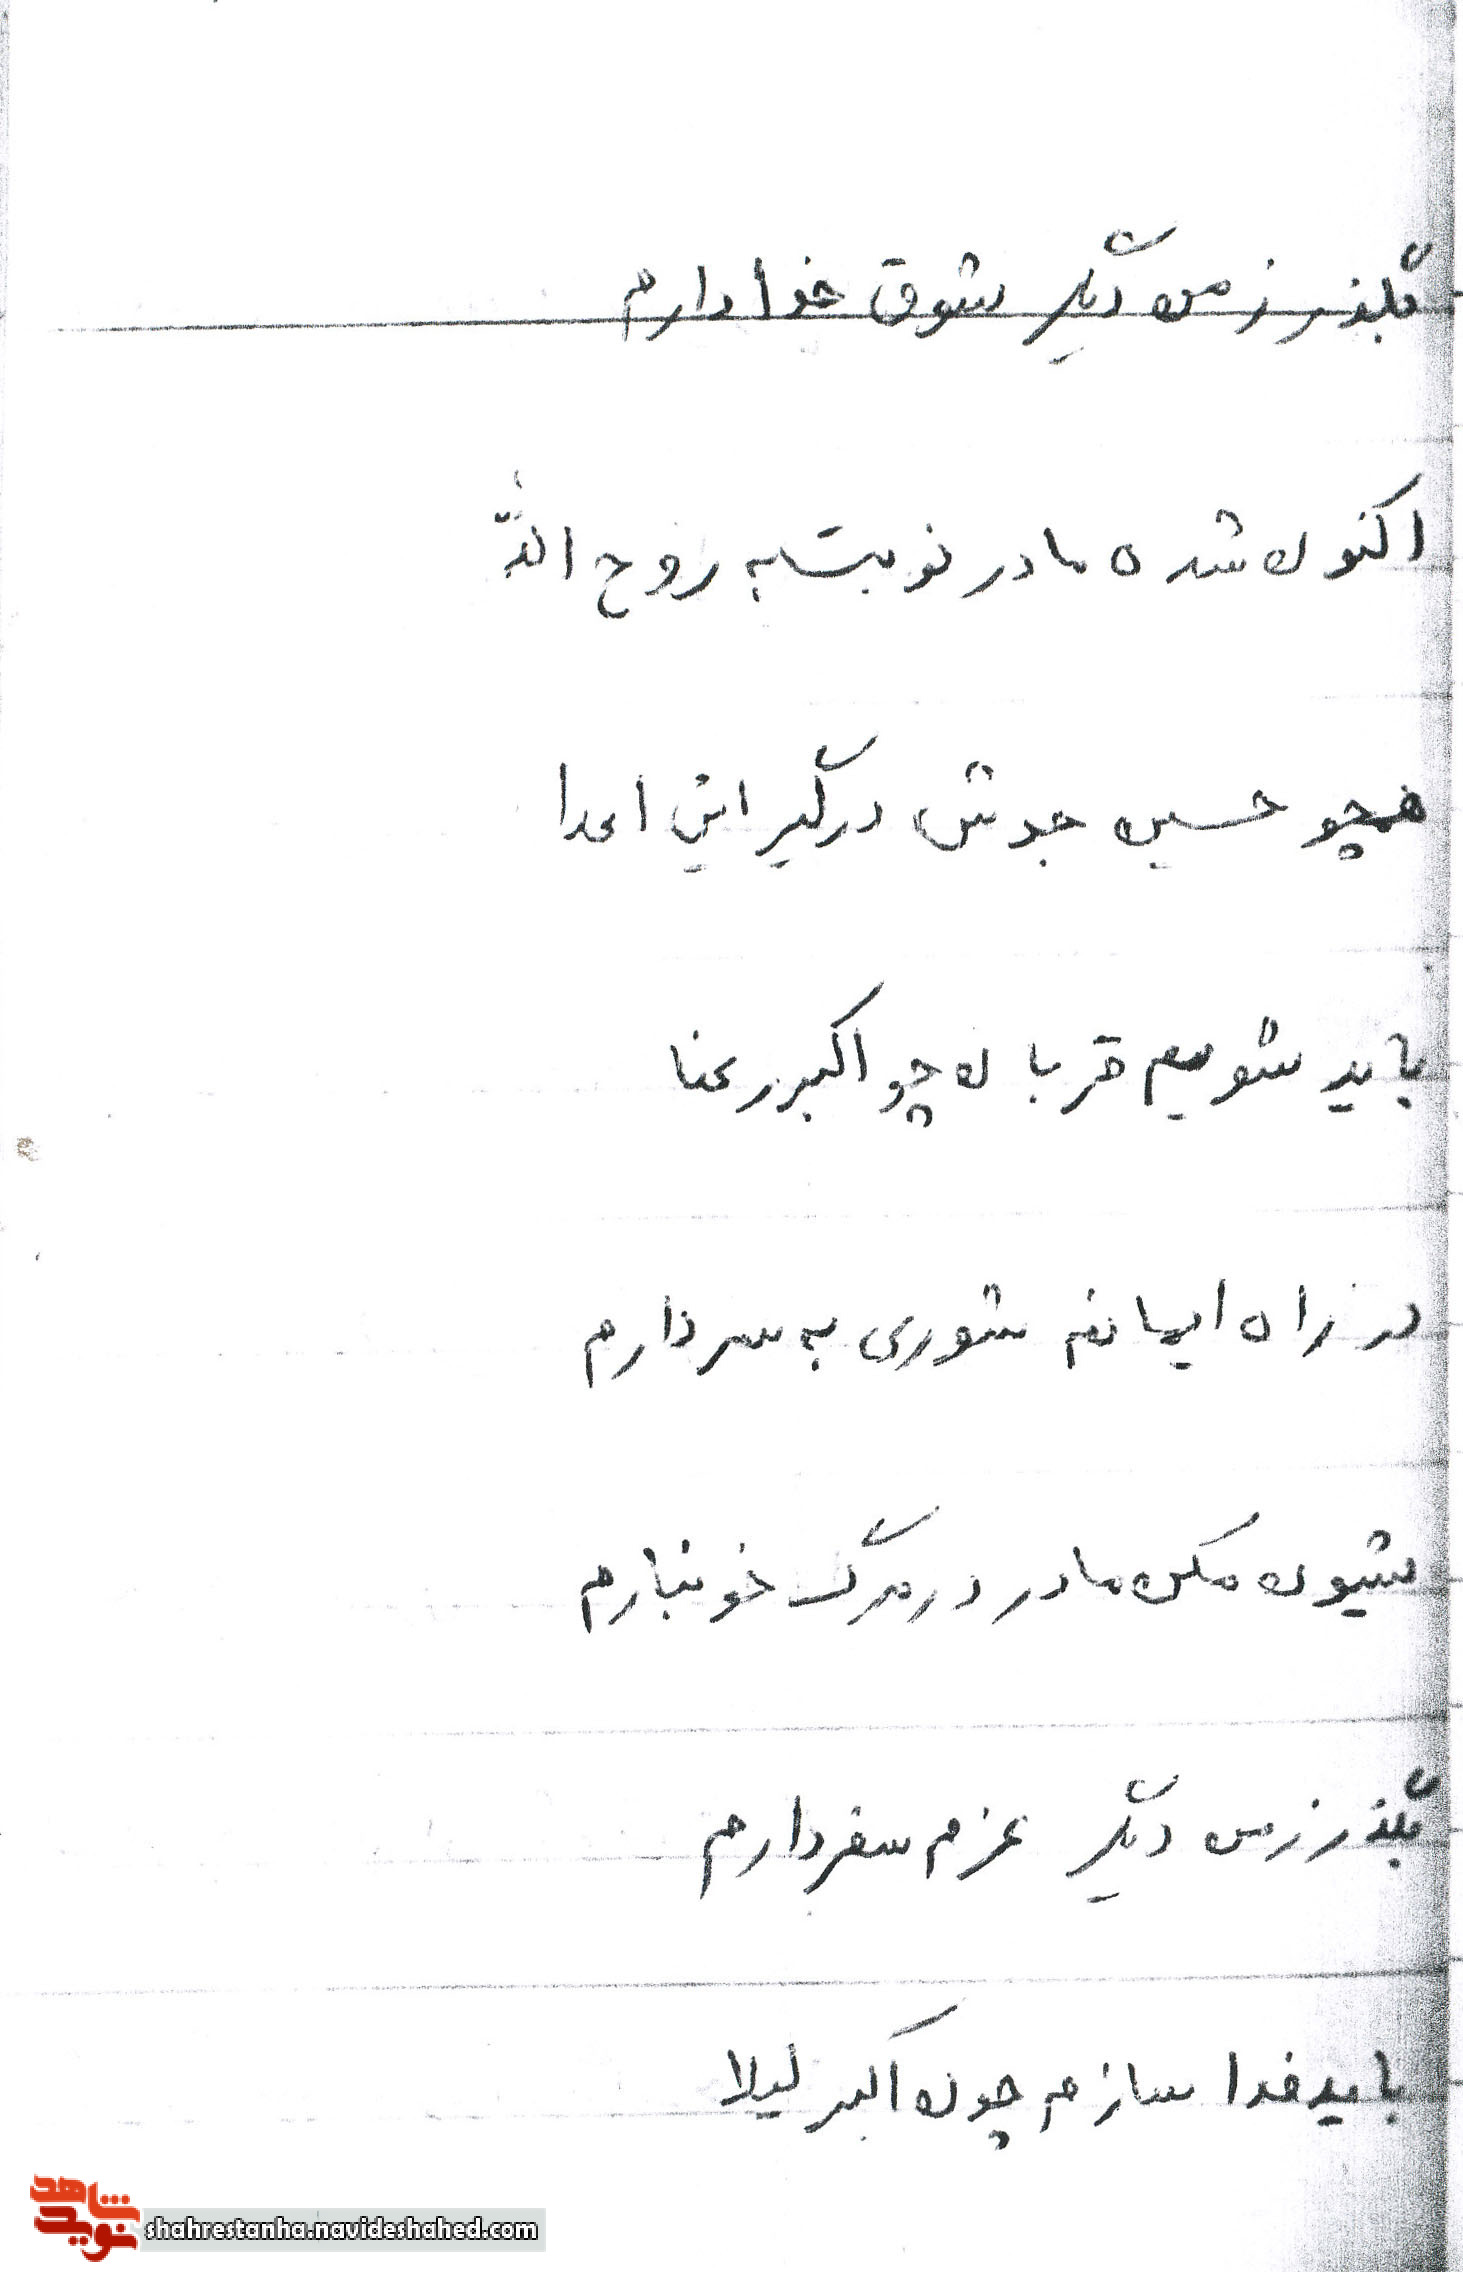 بگذر ز من دیگر شوق خدا دارم
اکنون شده مادر نوبت به روح الله
همچو حسین جدش درگیر این اعدا
باید شویم قربان چو اکبر رعنا
در راه ایمانم شوری به سر دارم
شیون مکن مادر در مرگ خونبارم
بگذر ز من دیگر عزم سفر دارم
باید فدا سازم چون اکبر لیلا
نوید شاهد
shahrestanha.navideshahed.com